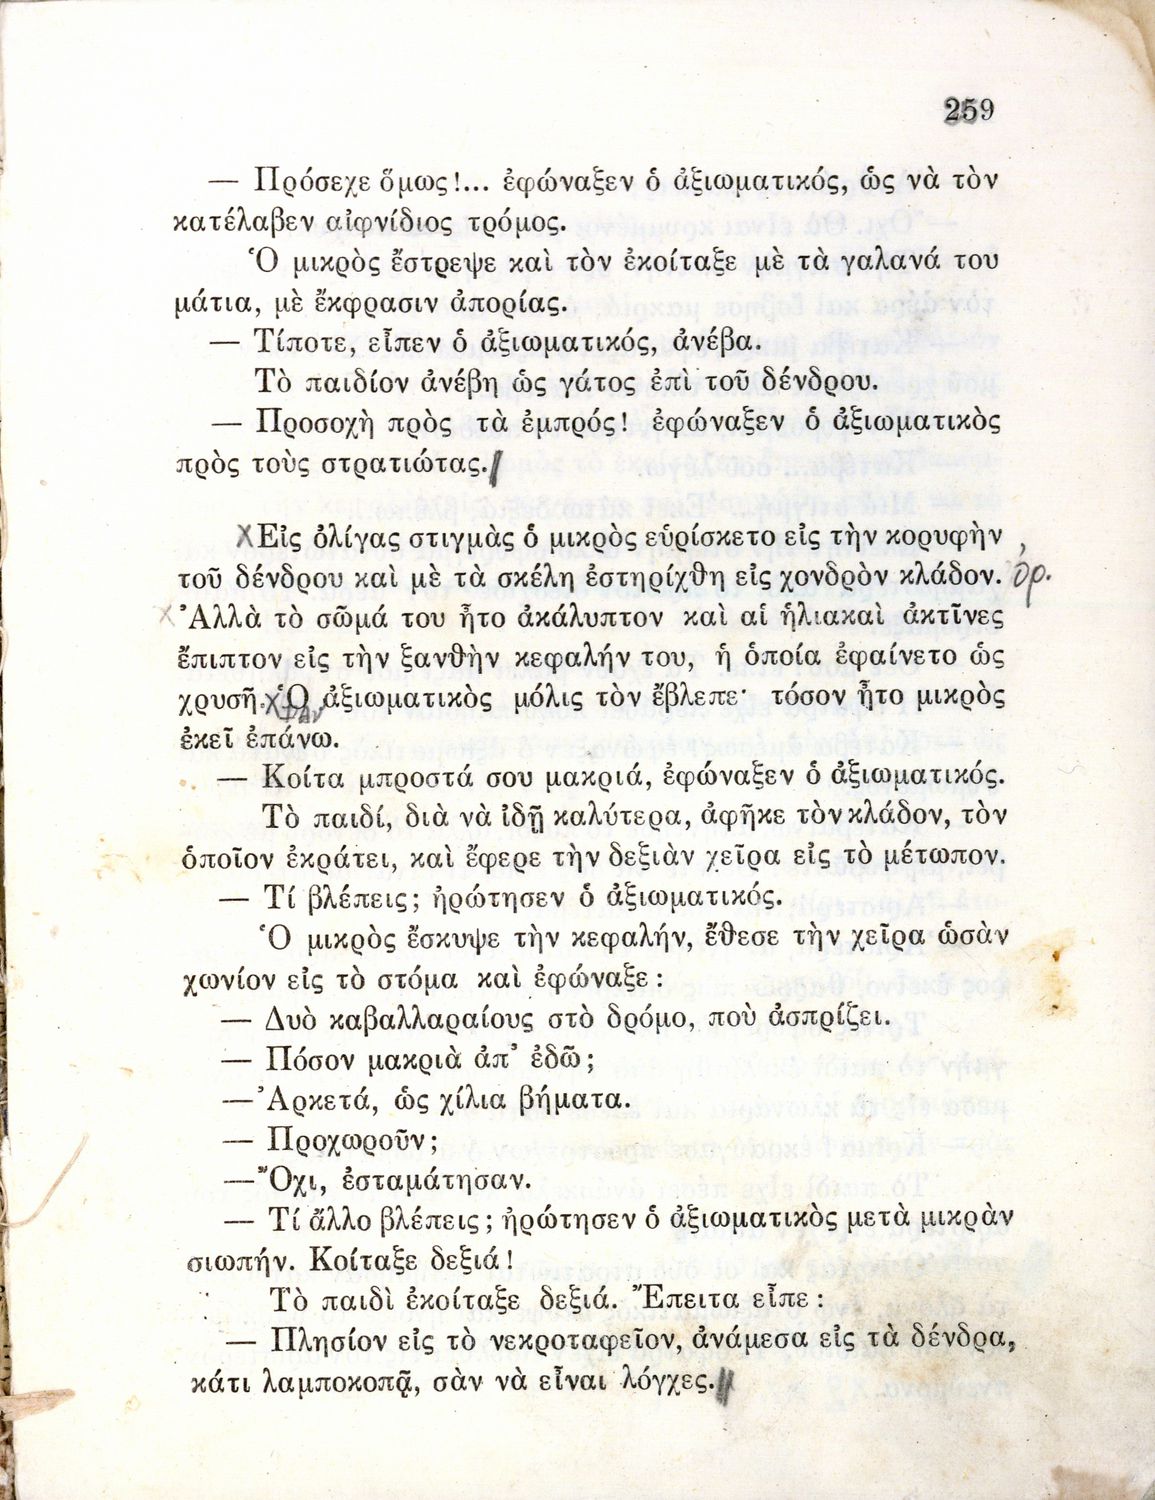 259
— Πρόσεχε ὅμως!... ἐφώναξεν ὁ ἀξιωματικός, ὡς νὰ τὸν
κατέλαβεν αἰφνίδιος τρόμος.
Ὁ μικρὸς ἔστρεψε καὶ τὸν ἐκοίταξε μὲ τὰ γαλανά του
μάτια, μὲ ἔκφρασιν ἀπορίας.
— Τίποτε, εἶπεν ὁ ἀξιωματικός, ἀνέβα.
Τὸ παιδίον ἀνέβη ὡς γάτος ἐπὶ τοῦ δένδρου.
— Προσοχὴ πρὸς τὰ ἐμπρός! ἐφώναξεν ὁ ἀξιωματικὸς
πρὸς τοὺς στρατιώτας.
Εἰς ὀλίγας στιγμὰς ὁ μικρὸς εὑρίσκετο εἰς τὴν κορυφὴν
τοῦ δένδρου καὶ μὲ τὰ σκέλη ἐστηρίχθη εἰς χονδρὸν κλάδον. ὁρ.
Ἀλλὰ τὸ σῶμά του ἦτο ἀκάλυπτον καὶ αἱ ἡλιακαὶ ἀκτῖνες
ἔπιπτον εἰς τὴν ξανθὴν κεφαλήν του, ἡ ὁποία ἐφαίνετο ὡς
χρυσῆ. Ὁ ἀξιωματικὸς μόλις τὸν ἔβλεπε· τόσον ἦτο μικρὸς
ἐκεῖ ἐπάνω.
— Κοίτα μπροστά σου μακριά, ἐφώναξεν ὁ ἀξιωματικός.
Τὸ παιδί, διὰ νὰ ἰδῇ καλύτερα, ἀφῆκε τὸν κλάδον, τὸν
ὁποῖον ἐκράτει, καὶ ἔφερε τὴν δεξιὰν χεῖρα εἰς τὸ μέτωπον.
— Τί βλέπεις; ἠρώτησεν ὁ ἀξιωματικός.
Ὁ μικρὸς ἔσκυψε τὴν κεφαλήν, ἔθεσε τὴν χεῖρα ὡσὰν
χωνίον εἰς τὸ στόμα καὶ ἐφώναξε :
— Δυὸ καβαλλαραίους στὸ δρόμο, ποὺ ἀσπρίζει.
— Πόσον μακριὰ ἀπ' ἐδῶ;
— Ἀρκετά, ὡς χίλια βήματα.
— Προχωροῦν;
— Ὄχι, ἐσταμάτησαν.
— Τί ἄλλο βλέπεις; ἠρώτησεν ὁ ἀξιωματικὸς μετὰ μικρὰν
σιωπήν. Κοίταξε δεξιά!
Τὸ παιδὶ ἐκοίταξε δεξιά. Ἔπειτα εἶπε :
— Πλησίον εἰς τὸ νεκροταφεῖον, ἀνάμεσα εἰς τὰ δένδρα,
κάτι λαμποκοπᾷ, σὰν νὰ εἶναι λόγχες.